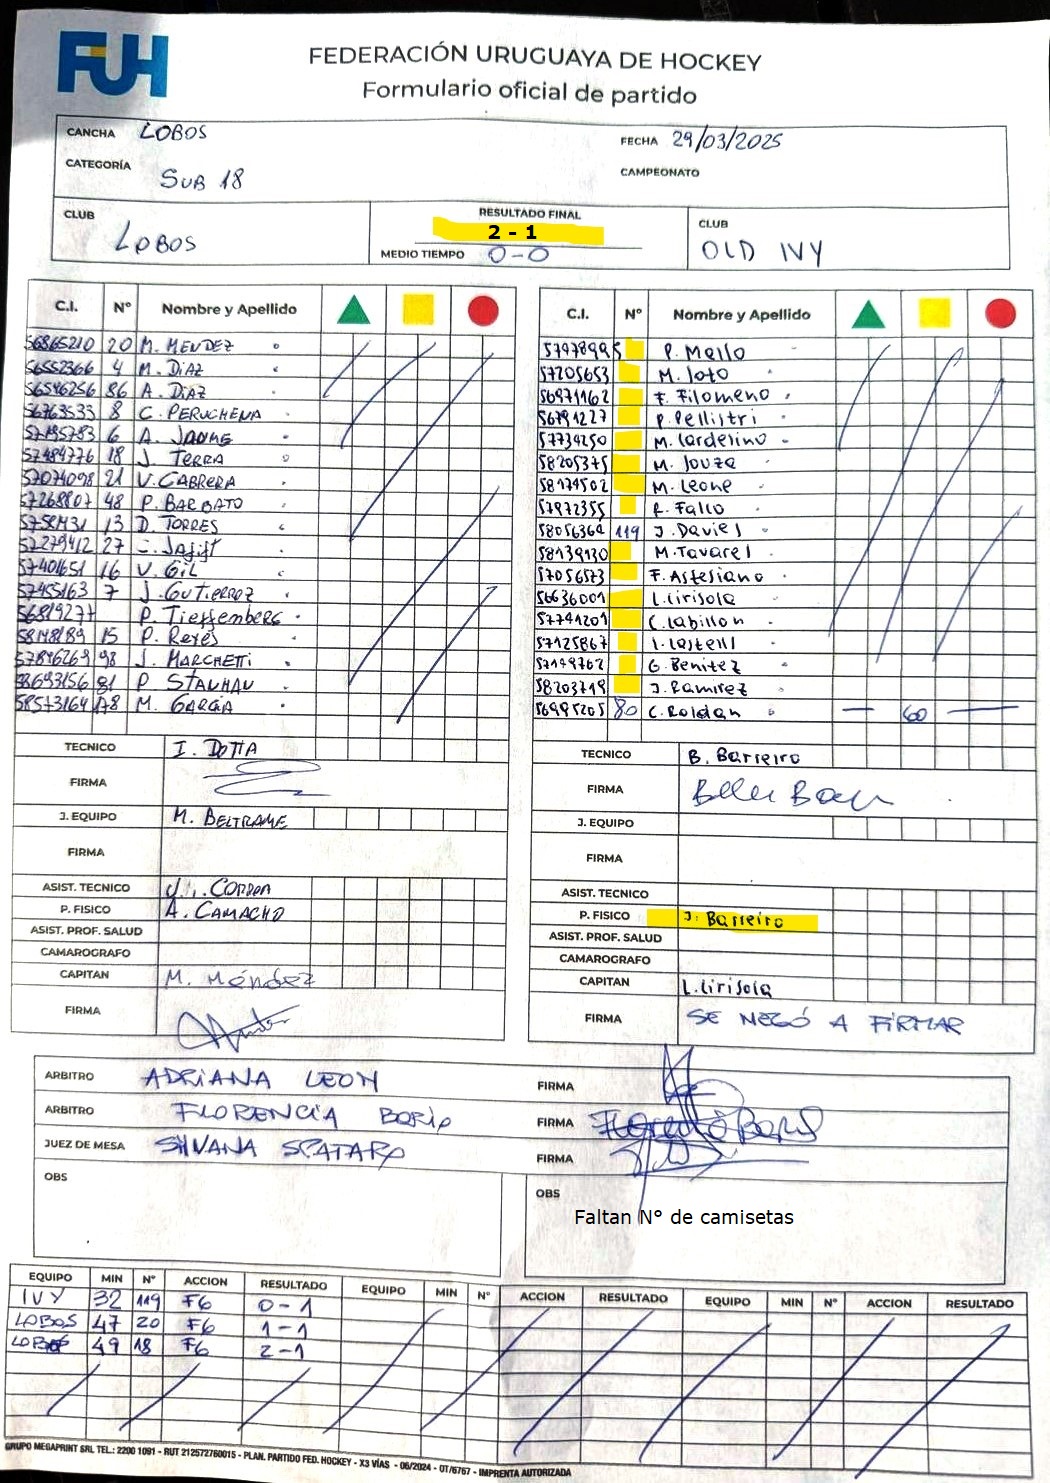 FUH
FEDERACIÓN URUGUAYA DE HOCKEY
Formulario oficial de partido
CANCHA LOBOS
FECHA 29/03/2025
CATEGORÍA SUB 18
CAMPEONATO
CLUB LOBOS
RESULTADO FINAL
2 - 1
MEDIO TIEMPO 0-0
CLUB OLD IVY
C.I. N° Nombre y Apellido
56865210 20 M. MENDEZ
56552366 4 M. DIAZ
56546256 86 A. DIAZ
56763533 8 C. PERUCHENA
57195783 6 A. JAUME
57484776 18 J. TERRA
57074098 21 V. CABRERA
57268807 48 P. BARBATO
13 D. TORRES
57279412 27
57401651 16 V. GIL
57455163 7 J. GUTIERREZ
56819277 P. Tieffenberg
15 P. Reyes
57846269 98 J. MARCHETTI
58693156 81 P STAUHAU
58573164 78 M. GARCIA
TECNICO I. DOTTA
FIRMA
J. EQUIPO M. BELTRAME
FIRMA
ASIST. TECNICO CORREA
P. FISICO A. CAMACHO
ASIST. PROF. SALUD
CAMAROGRAFO
CAPITAN M. Méndez
FIRMA
C.I. N° Nombre y Apellido
57978995 P. Mello
57205653 M. Soto
56971162 F. Filomeno
56791227 P. Pellistri
57734250 M. Cardelino
58205375 M. Souza
58174502 M. Leone
57972355 R. Falco
58056364 119 J. Daviel
58139130 M. Tavarel
57056573 F. Astesiano
56636001 L. Cirisola
57741201 C. Labillon
57125867 I. Castell
57149762 G. Benitez
58203719 J. Ramirez
56995205 80 C. Roldan 60
TECNICO B. Barreiro
FIRMA
J. EQUIPO
FIRMA
ASIST. TECNICO
P. FISICO J. Barreiro
ASIST. PROF. SALUD
CAMAROGRAFO
CAPITAN L. Cirisola
FIRMA SE NEGÓ A FIRMAR
ARBITRO ADRIANA LEON FIRMA
ARBITRO FLORENCIA BORIO FIRMA
JUEZ DE MESA SILVANA SPATARO FIRMA
OBS
OBS
Faltan N° de camisetas
EQUIPO MIN N° ACCION RESULTADO EQUIPO MIN N° ACCION RESULTADO EQUIPO MIN N° ACCION RESULTADO
IVY 32 119 FG 0-1
LOBOS 47 20 FG 1-1
LOBOS 49 18 FG 2-1
GRUPO MEGAPRINT SRL TEL.: 2200 1091 - RUT 212572760015 - PLAN. PARTIDO FED. HOCKEY - X3 VÍAS - 06/2024 - OT/6757 - IMPRENTA AUTORIZADA